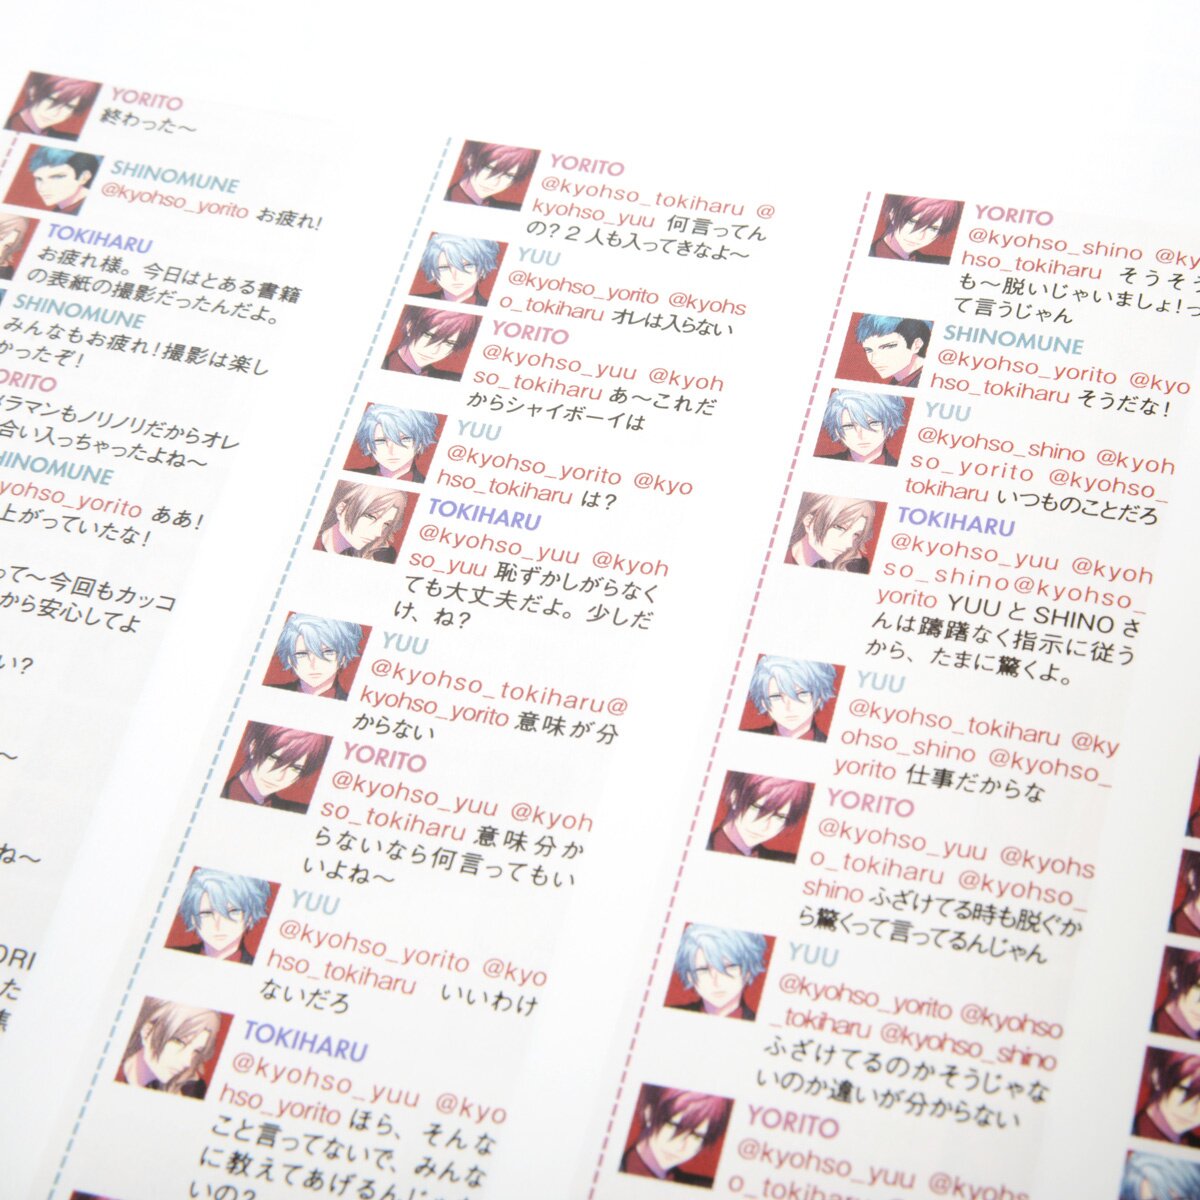 YORITO
終わった〜
SHINOMUNE
@kyohso_yorito お疲れ!
TOKIHARU
お疲れ様。今日はとある書籍
の表紙の撮影だったんだよ。
SHINOMUNE
みんなもお疲れ!撮影は楽し
かったぞ!
ORITO
メラマンもノリノリだからオレ
合い入っちゃったよね〜
HINOMUNE
yohso_yorito ああ!
上がっていたな!
って〜今回もカッコ
から安心してよ
い?
〜
ね〜
ORI
た
YORITO
@kyohso_tokiharu @
kyohso_yuu 何言ってん
の?2人も入ってきなよ〜
YUU
@kyohso_yorito @kyohs
o_tokiharu オレは入らない
YORITO
@kyohso_yuu @kyoh
so_tokiharu あ〜これだ
からシャイボーイは
YUU
@kyohso_yorito @kyo
hso_tokiharu は?
TOKIHARU
@kyohso_yuu @kyoh
so_yuu 恥ずかしがらなく
ても大丈夫だよ。少しだ
け、ね?
YUU
@kyohso_tokiharu@
kyohso_yorito 意味が分
からない
YORITO
@kyohso_yuu @kyoh
so_tokiharu 意味分か
らないなら何言ってもい
いよね〜
YUU
@kyohso_yorito @kyo
hso_tokiharu いいわけ
ないだろ
TOKIHARU
@kyohso_yuu @kyo
hso_yorito ほら、そんな
こと言ってないで、みんな
に教えてあげるんじゃな
いの?
YORITO
@kyohso_shino @ky
hso_tokiharu そうそう
も〜脱いじゃいましょ!っ
て言うじゃん
SHINOMUNE
@kyohso_yorito @kyo
hso_tokiharu そうだな!
YUU
@kyohso_shino @kyoh
so_yorito @kyohso_
tokiharu いつものことだろ
TOKIHARU
@kyohso_yuu @kyoh
so_shino@kyohso_
yorito YUUとSHINOさ
んは躊躇なく指示に従う
から、たまに驚くよ。
YUU
@kyohso_tokiharu @ky
ohso_shino @kyohso_
yorito 仕事だからな
YORITO
@kyohso_yuu @kyohs
o_tokiharu @kyohso_
shino ふざけてる時も脱ぐか
ら驚くって言ってるんじゃん
YUU
@kyohso_yorito @kyohso
_tokiharu @kyohso_shino
ふざけてるのかそうじゃな
いのか違いが分からない
YORITO
@kyohso_yuu @kyohs
o_tokiharu @kyohso